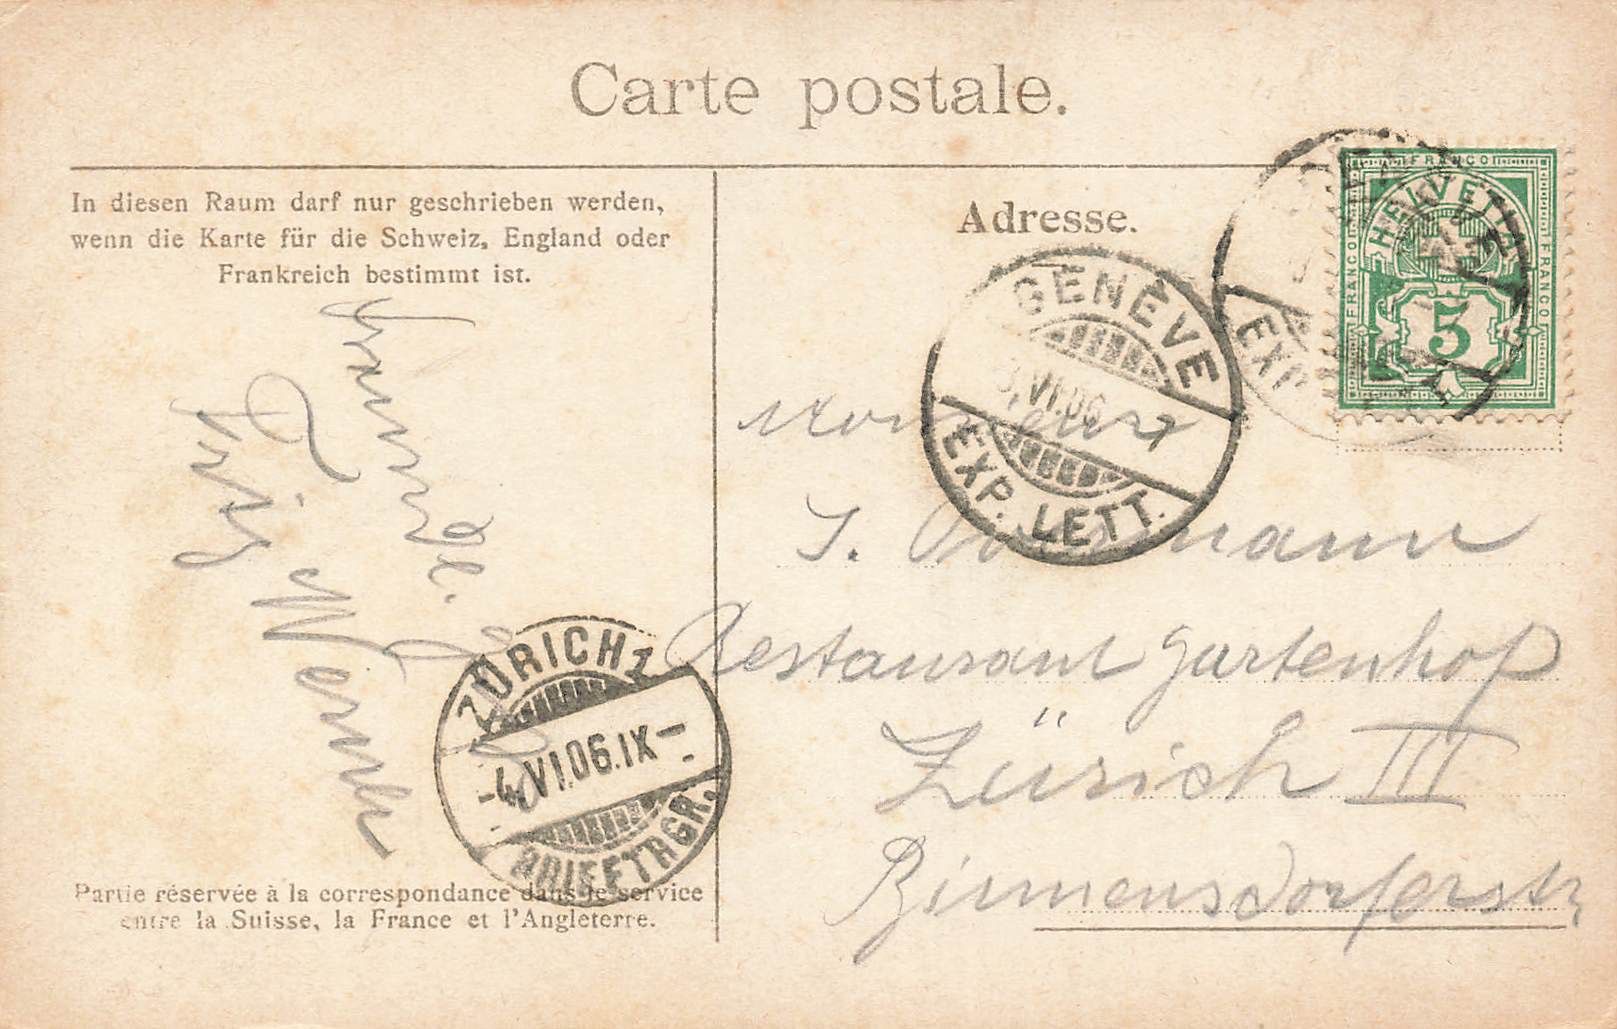 Carte postale.
In diesen Raum darf nur geschrieben werden,
wenn die Karte für die Schweiz, England oder
Frankreich bestimmt ist.
Adresse.
FRANCO
FRANCO
FRANCO
HELVETIA
5
EXP.
GENÈVE
VI.06 7
EXP. LETT.
J.
Restaurant Gartenhof
Zürich III
Birmensdorferstr
Werner
ZÜRICH 1
-4.VI.06.IX-
BRIEFTRGR.
Partie réservée à la correspondance dans le service
entre la Suisse, la France et l'Angleterre.